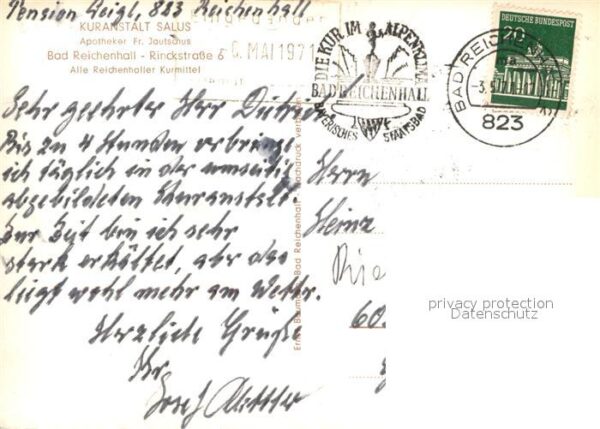 Pension Geigl, 883 Reichenhall
KURANSTALT SALUS
Apotheker Fr. Jautschus
Bad Reichenhall - Rinckstraße 6
Alle Reichenhaller Kurmittel
6. MAI 1971
DIE KUR IM ALPENKLIMA
BAD REICHENHALL
BAYERISCHES STAATSBAD
BAD REICHENHALL
823
DEUTSCHE BUNDESPOST
20
Sehr geehrter Herr
Bis zu 4 Stunden verbringe
ich täglich in der umseitig
abgebildeten Kuranstalt.
Zur Zeit bin ich sehr
stark erkältet, aber das
liegt wohl mehr am Wetter.
Herzliche Grüße
Ihr
Josef
Bad Reichenhall - Nachdruck verboten
Herrn
Heinz
60.
privacy protection
Datenschutz